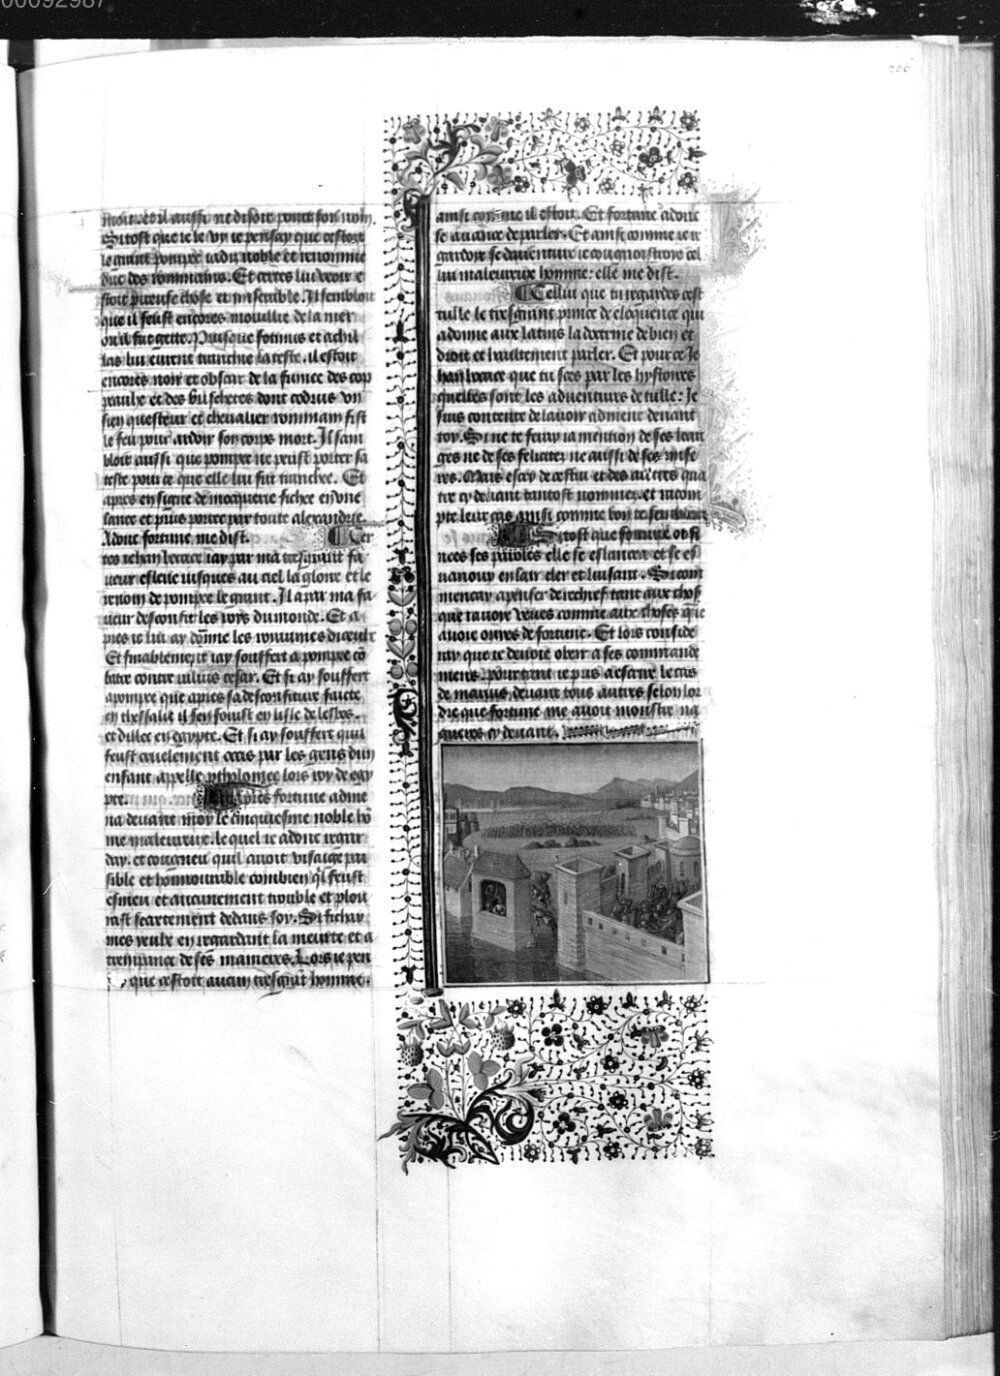 00092987
206
mort. et il aussi ne disoit point son nom.
Si tost que ie le vy ie pensay que cestoit
le grant pompee iadis noble et renomme
duc des rommains. Et certes lui veoir e
stoit piteuse chose et miserable. Il sembloit
que il feust encores moullie de la mer
ou il fut gette. Puis que fotinus et achil
las lui eurent tranchie la teste. il estoit
encores noir et obscur de la fumee des cop
peaulx et des buschetes dont codrus vn
sien questeur et cheualier rommain fist
le feu pour ardoir son corps mort. Il sam
bloit aussi que pompee ne peust porter sa
teste pour ce que elle lui fut tranchee. Et
apres en signe de mocquerie fichee en vne
lance et puis portee par toute alexandrie.
Adonc fortune me dist. Cer
tes iehan bocace iay par ma tresgrant fa
ueur esleue iusques au ciel la gloire et le
renom de pompee le grant. Il a par ma fa
ueur desconfit les roys du monde. Et a
pres ie lui ay donne les royaumes diceulx
Et finablement iay souffert a pompee co
batre contre iulius cesar. Et si ay souffert
a pompee que apres sa desconfiture faicte
en thessalie il sen fouist en lisle de lesbos.
et dillec en egypte. Et si ay souffert quil
feust cruelement occis par les gens dun
enfant appelle ptholomee lors roy de egy
pte. Apres fortune adme
na deuant moy le cinquiesme noble ho
me maleureux. le quel ie adonc regar
day. et congneu quil auoit visaige pai
sible et honnourable combien ql feust
esmeu et aucunement trouble et plou
rast secretement dedans soy. Si fichay
mes yeulx en regardant la meurte et a
trempance de ses manieres. Lors ie pen
say que cestoit aucun tresgrat homme.
ainsi comme il estoit. Et fortune adonc
se auance de parler. Et ainsi comme ie re
gardoye se dauenture ie congnoistroye cel
lui maleureux homme: elle me dist.
Cellui que tu regardes cest
tulle le tresgrant prince de eloquence qui
a donne aux latins la doctrine de bien et
droit et haultement parler. Et pour ce Je
han bocace que tu sces par les hystoires
quelles sont les aduentures de tulle: Je
suis contente de lauoir admene deuant
toy. Si ne te feray ia mention de ses louan
ges ne de ses felicitez ne aussi de ses mise
res. Mais escry de cestui et des autres qua
tre cy deuant tantost nommez. et racom
pte leur cas ainsi comme bon te semblera
Si tost que fortune ot fi
nees ses paroles elle se eslancea et se es
uanouy en lair cler et luisant. Si com
mencay a penser de rechief tant aux choses
que iauoie veues comme aux choses que
auoie oyes de fortune. Et lors conside
ray que ie deuoie obeir a ses commande
mens. pour tant ie pris a escrire le cas
de marius deuant tous autres selon lor
dre que fortune me auoit monstre na
gueres cy deuant.